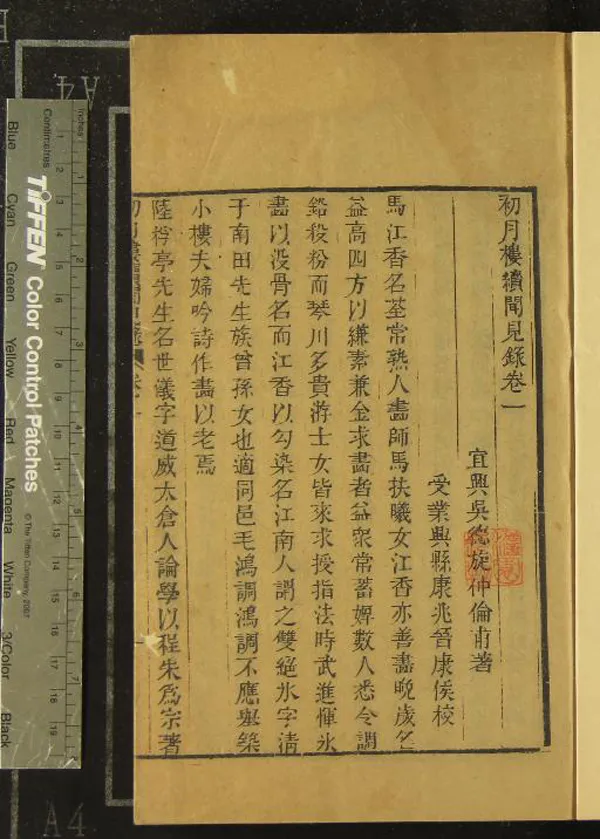 初月樓續聞見錄卷一
宜興吳德旋仲倫甫著
受業興縣康兆晉康侯校
馬江香名荃常熟人畫師馬扶曦女江香亦善畫晚歲名
益高四方以縑素兼金求畫者益衆常蓄婢數人悉令調
鉛殺粉而琴川多貴游士女皆來求授指法時武進惲氷
畫以没骨名而江香以勾染名江南人謂之雙絕氷字清
于南田先生族曾孫女也適同邑毛鴻調鴻調不應舉築
小樓夫婦吟詩作畫以老焉
陸桴亭先生名世儀字道威太倉人論學以程朱爲宗著
Inches
Centimetres
1 2 3 4 5 6 7
1 2 3 4 5 6 7 8 9 10 11 12 13 14 15 16 17 18 19
TIFFEN Color Control Patches
© The Tiffen Company, 2007
Blue
Cyan
Green
Yellow
Red
Magenta
White
3/Color
Black
A4
A4